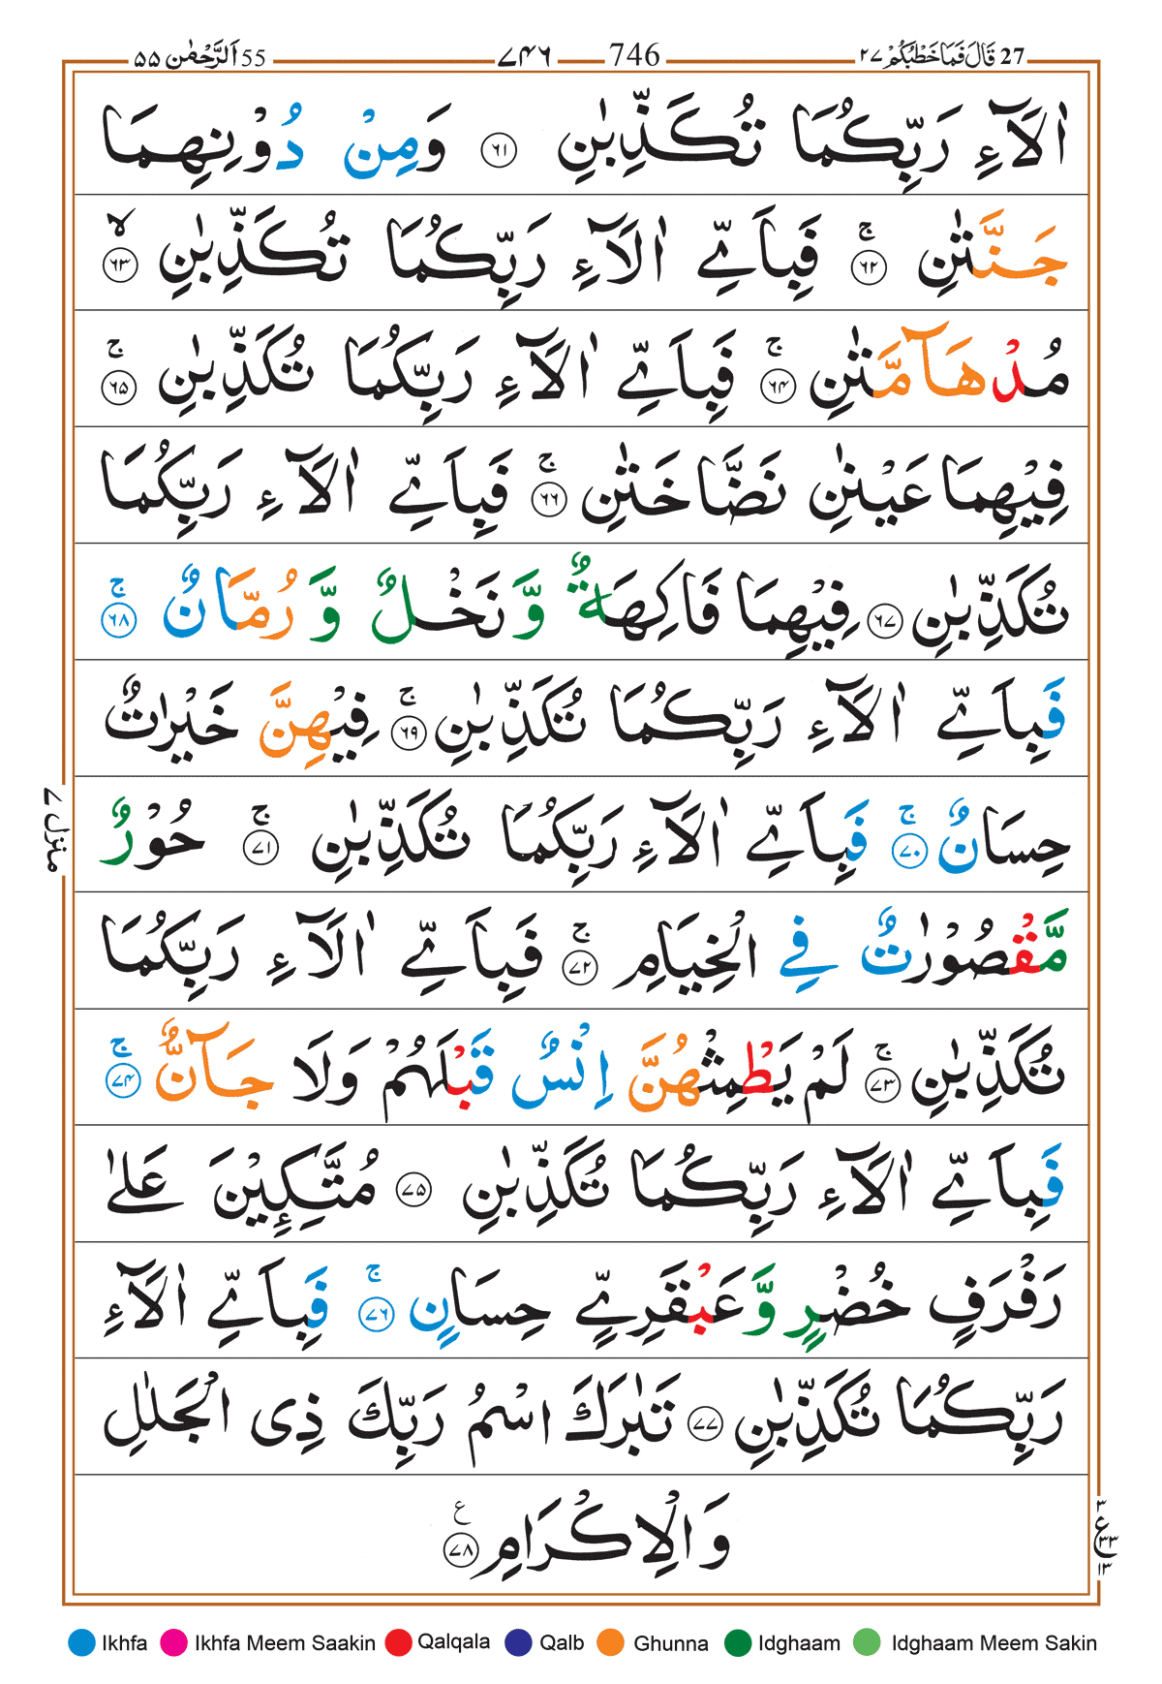 27 قَالَ فَمَا خَطْبُكُمْ ٢٧ 746 ٧٤٦ 55 اَلرَّحْمٰن ٥٥
اٰلَآءِ رَبِّكُمَا تُكَذِّبٰنِ ٦١ وَمِنْ دُوْنِهِمَا
جَنَّتٰنِ ۚ ٦٢ فَبِاَيِّ اٰلَآءِ رَبِّكُمَا تُكَذِّبٰنِ ۙ ٦٣
مُدْهَآمَّتٰنِ ۚ ٦٤ فَبِاَيِّ اٰلَآءِ رَبِّكُمَا تُكَذِّبٰنِ ۚ ٦٥
فِيْهِمَا عَيْنٰنِ نَضَّاخَتٰنِ ۚ ٦٦ فَبِاَيِّ اٰلَآءِ رَبِّكُمَا
تُكَذِّبٰنِ ٦٧ فِيْهِمَا فَاكِهَةٌ وَّنَخْلٌ وَّرُمَّانٌ ۚ ٦٨
فَبِاَيِّ اٰلَآءِ رَبِّكُمَا تُكَذِّبٰنِ ۚ ٦٩ فِيْهِنَّ خَيْرٰتٌ
حِسَانٌ ۚ ٧٠ فَبِاَيِّ اٰلَآءِ رَبِّكُمَا تُكَذِّبٰنِ ۚ ٧١ حُوْرٌ
مَّقْصُوْرٰتٌ فِي الْخِيَامِ ۚ ٧٢ فَبِاَيِّ اٰلَآءِ رَبِّكُمَا
تُكَذِّبٰنِ ۚ ٧٣ لَمْ يَطْمِثْهُنَّ اِنْسٌ قَبْلَهُمْ وَلَا جَآنٌّ ۚ ٧٤
فَبِاَيِّ اٰلَآءِ رَبِّكُمَا تُكَذِّبٰنِ ٧٥ مُتَّكِـِٕيْنَ عَلٰى
رَفْرَفٍ خُضْرٍ وَّعَبْقَرِيٍّ حِسَانٍ ۚ ٧٦ فَبِاَيِّ اٰلَآءِ
رَبِّكُمَا تُكَذِّبٰنِ ٧٧ تَبٰرَكَ اسْمُ رَبِّكَ ذِى الْجَلٰلِ
وَالْاِكْرَامِ ع ٧٨
منزل ٧
٣ ع ٣٣ ١٣
Ikhfa Ikhfa Meem Saakin Qalqala Qalb Ghunna Idghaam Idghaam Meem Sakin